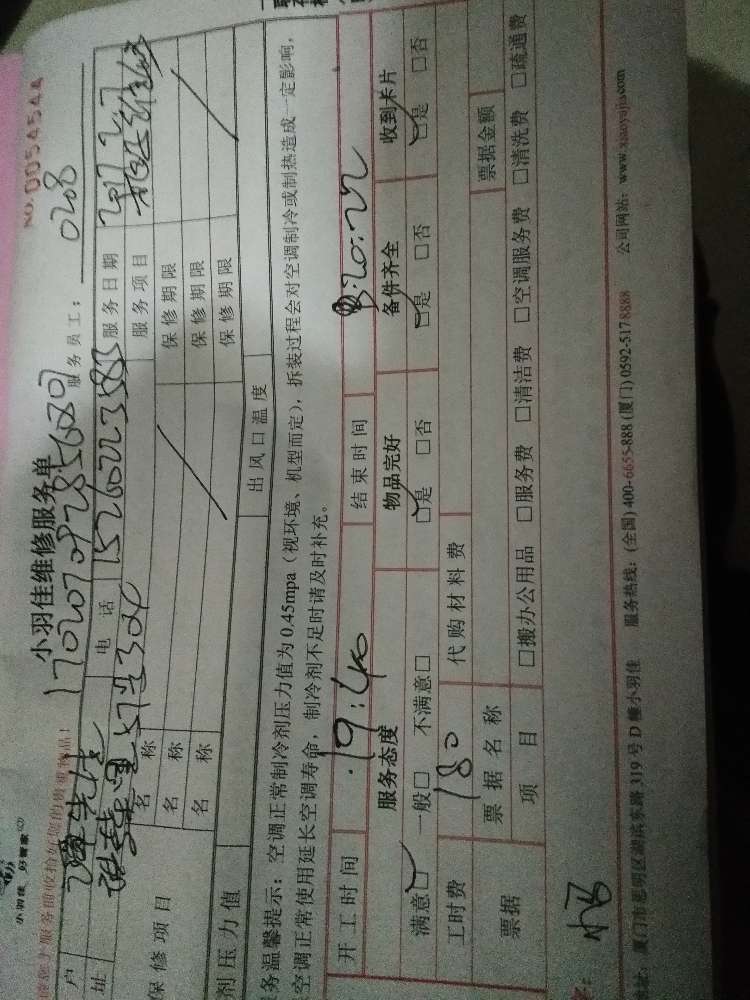 小羽佳 好管家
NO.0054544
小羽佳维修服务单
服务员工： 0208
户 先生 电话 15260223585 服务日期 2017.2.7
址 304 服务项目
保修项目 名称 保修期限
名称 保修期限
名称 保修期限
剂压力值 出风口温度
务温馨提示：空调正常制冷剂压力值为0.45mpa（视环境、机型而定），拆装过程会对空调制冷或制热造成一定影响，
空调正常使用延长空调寿命，制冷剂不足时请及时补充。
开工时间 19:40 结束时间 20:22
服务态度 物品完好 备件齐全 收到卡片
满意□ 一般□ 不满意□ □是 □否 □是 □否 □是 □否
工时费 180 代购材料费
票据 票据名称 票据金额
项目 □搬办公用品 □服务费 □清洁费 □空调服务费 □清洗费 □疏通费
厦门市思明区湖滨东路319号D幢小羽佳 服务热线：(全国) 400-6655-888 (厦门) 0592-5178888 公司网站：www.xiaoyujia.com